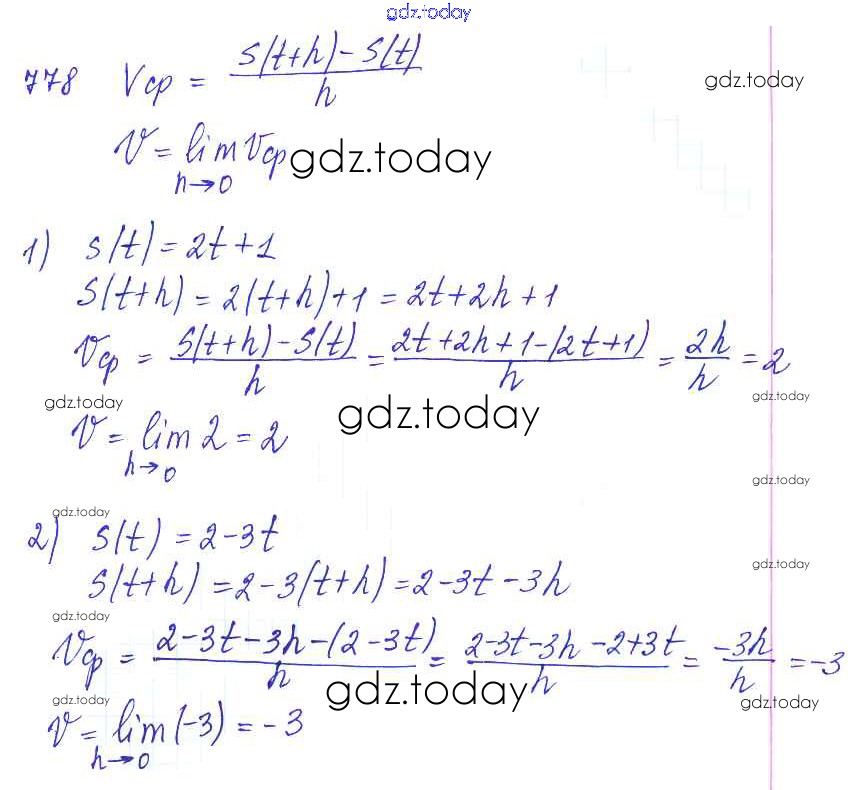 gdz.today
778 Vср = S(t+h)-S(t) / h
gdz.today
V = lim Vср gdz.today
h→0
1) S(t) = 2t+1
S(t+h) = 2(t+h)+1 = 2t+2h+1
Vср = S(t+h)-S(t) / h = 2t+2h+1-(2t+1) / h = 2h / h = 2
gdz.today gdz.today gdz.today
V = lim 2 = 2
h→0
gdz.today
gdz.today
2) S(t) = 2-3t
gdz.today
S(t+h) = 2-3(t+h) = 2-3t-3h
gdz.today
Vср = 2-3t-3h-(2-3t) / h = 2-3t-3h-2+3t / h = -3h / h = -3
gdz.today gdz.today gdz.today
V = lim (-3) = -3
h→0